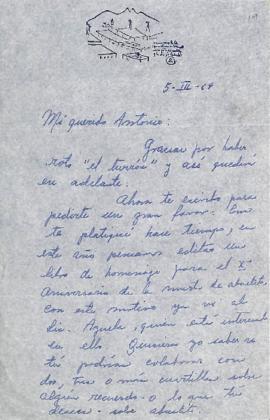 5-III-69
Mi querido Antonio:
Gracias por haber
roto "el turrón" y así quedará
en adelante.
Ahora te escribo para
pedirte un gran favor.
te platiqué hace tiempo, en
este año pensamos editar un
libro de homenaje para el X
Aniversario de la muerte de abuelito.
Con este motivo ya ví al
Lic. Azuela, quien está interesado
en ello. Quisiera yo saber si
tú podrías colaborar con
dos, tres o más cuartillas sobre
algún recuerdo - o lo que tú
desees - sobre abuelito.